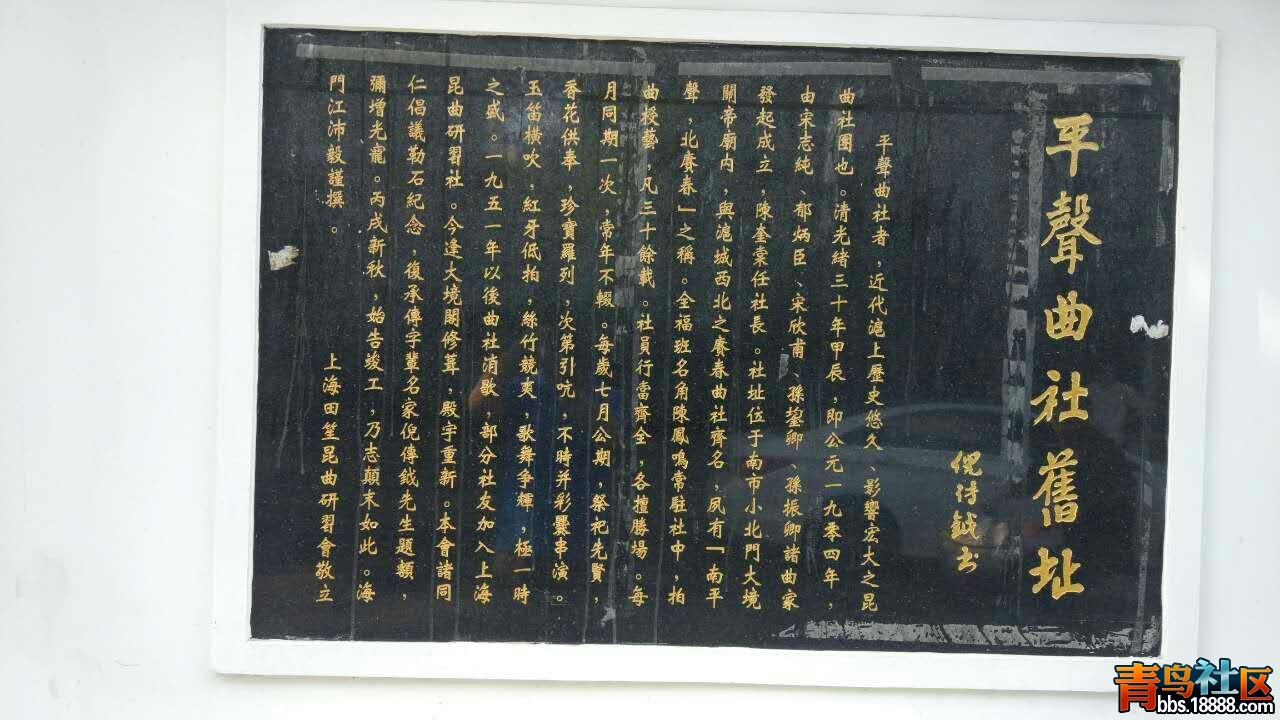 平聲曲社舊址
倪传鉞书
平聲曲社者，近代滬上歷史悠久、影響宏大之昆
曲社團也。清光緒三十年甲辰，即公元一九零四年，
由宋志純、郁炳臣、宋欣甫、孫鋆卿、孫振卿諸曲家
發起成立，陳奎棠任社長。社址位于南市小北門大境
關帝廟内，與滬城西北之賡春曲社齊名，夙有「南平
聲，北賡春」之稱。全福班名角陳鳳鳴常駐社中，拍
曲授藝，凡三十餘載。社員行當齊全，各擅勝場。每
月同期一次，常年不輟。每歲七月公期，祭祀先賢，
香花供奉，珍寶羅列，次第引吭，不時并彩爨串演。
玉笛横吹，紅牙低拍，絲竹競爽，歌舞争輝，極一時
之盛。一九五一年以後曲社消歇，部分社友加入上海
昆曲研習社。今逢大境閣修葺，殿宇重新。本會諸同
仁倡議勒石紀念，復承傳字輩名家倪傳鉞先生題額，
彌增光寵。丙戌新秋，始告竣工，乃志顛末如此。海
門江沛毅謹撰。
上海田笙昆曲研習會敬立
青鸟社区
bbs.18888.com